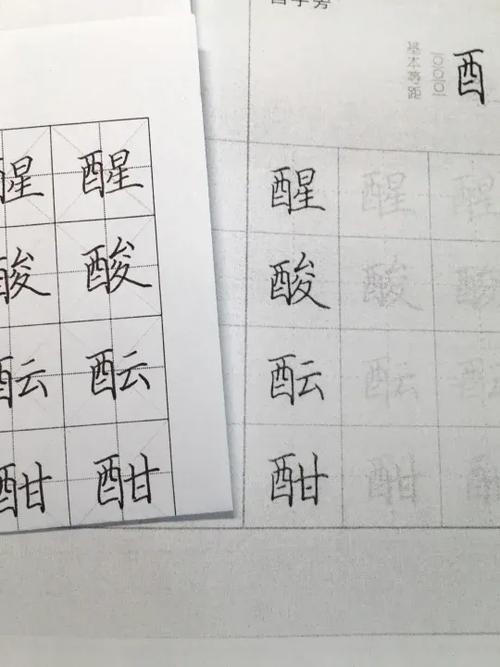 字旁
酉
基本等距
醒 醒
酸 酸
酝 酝
酣 酣
醒 醒 醒
酸 酸 酸
酝 酝 酝
酣 酣 酣